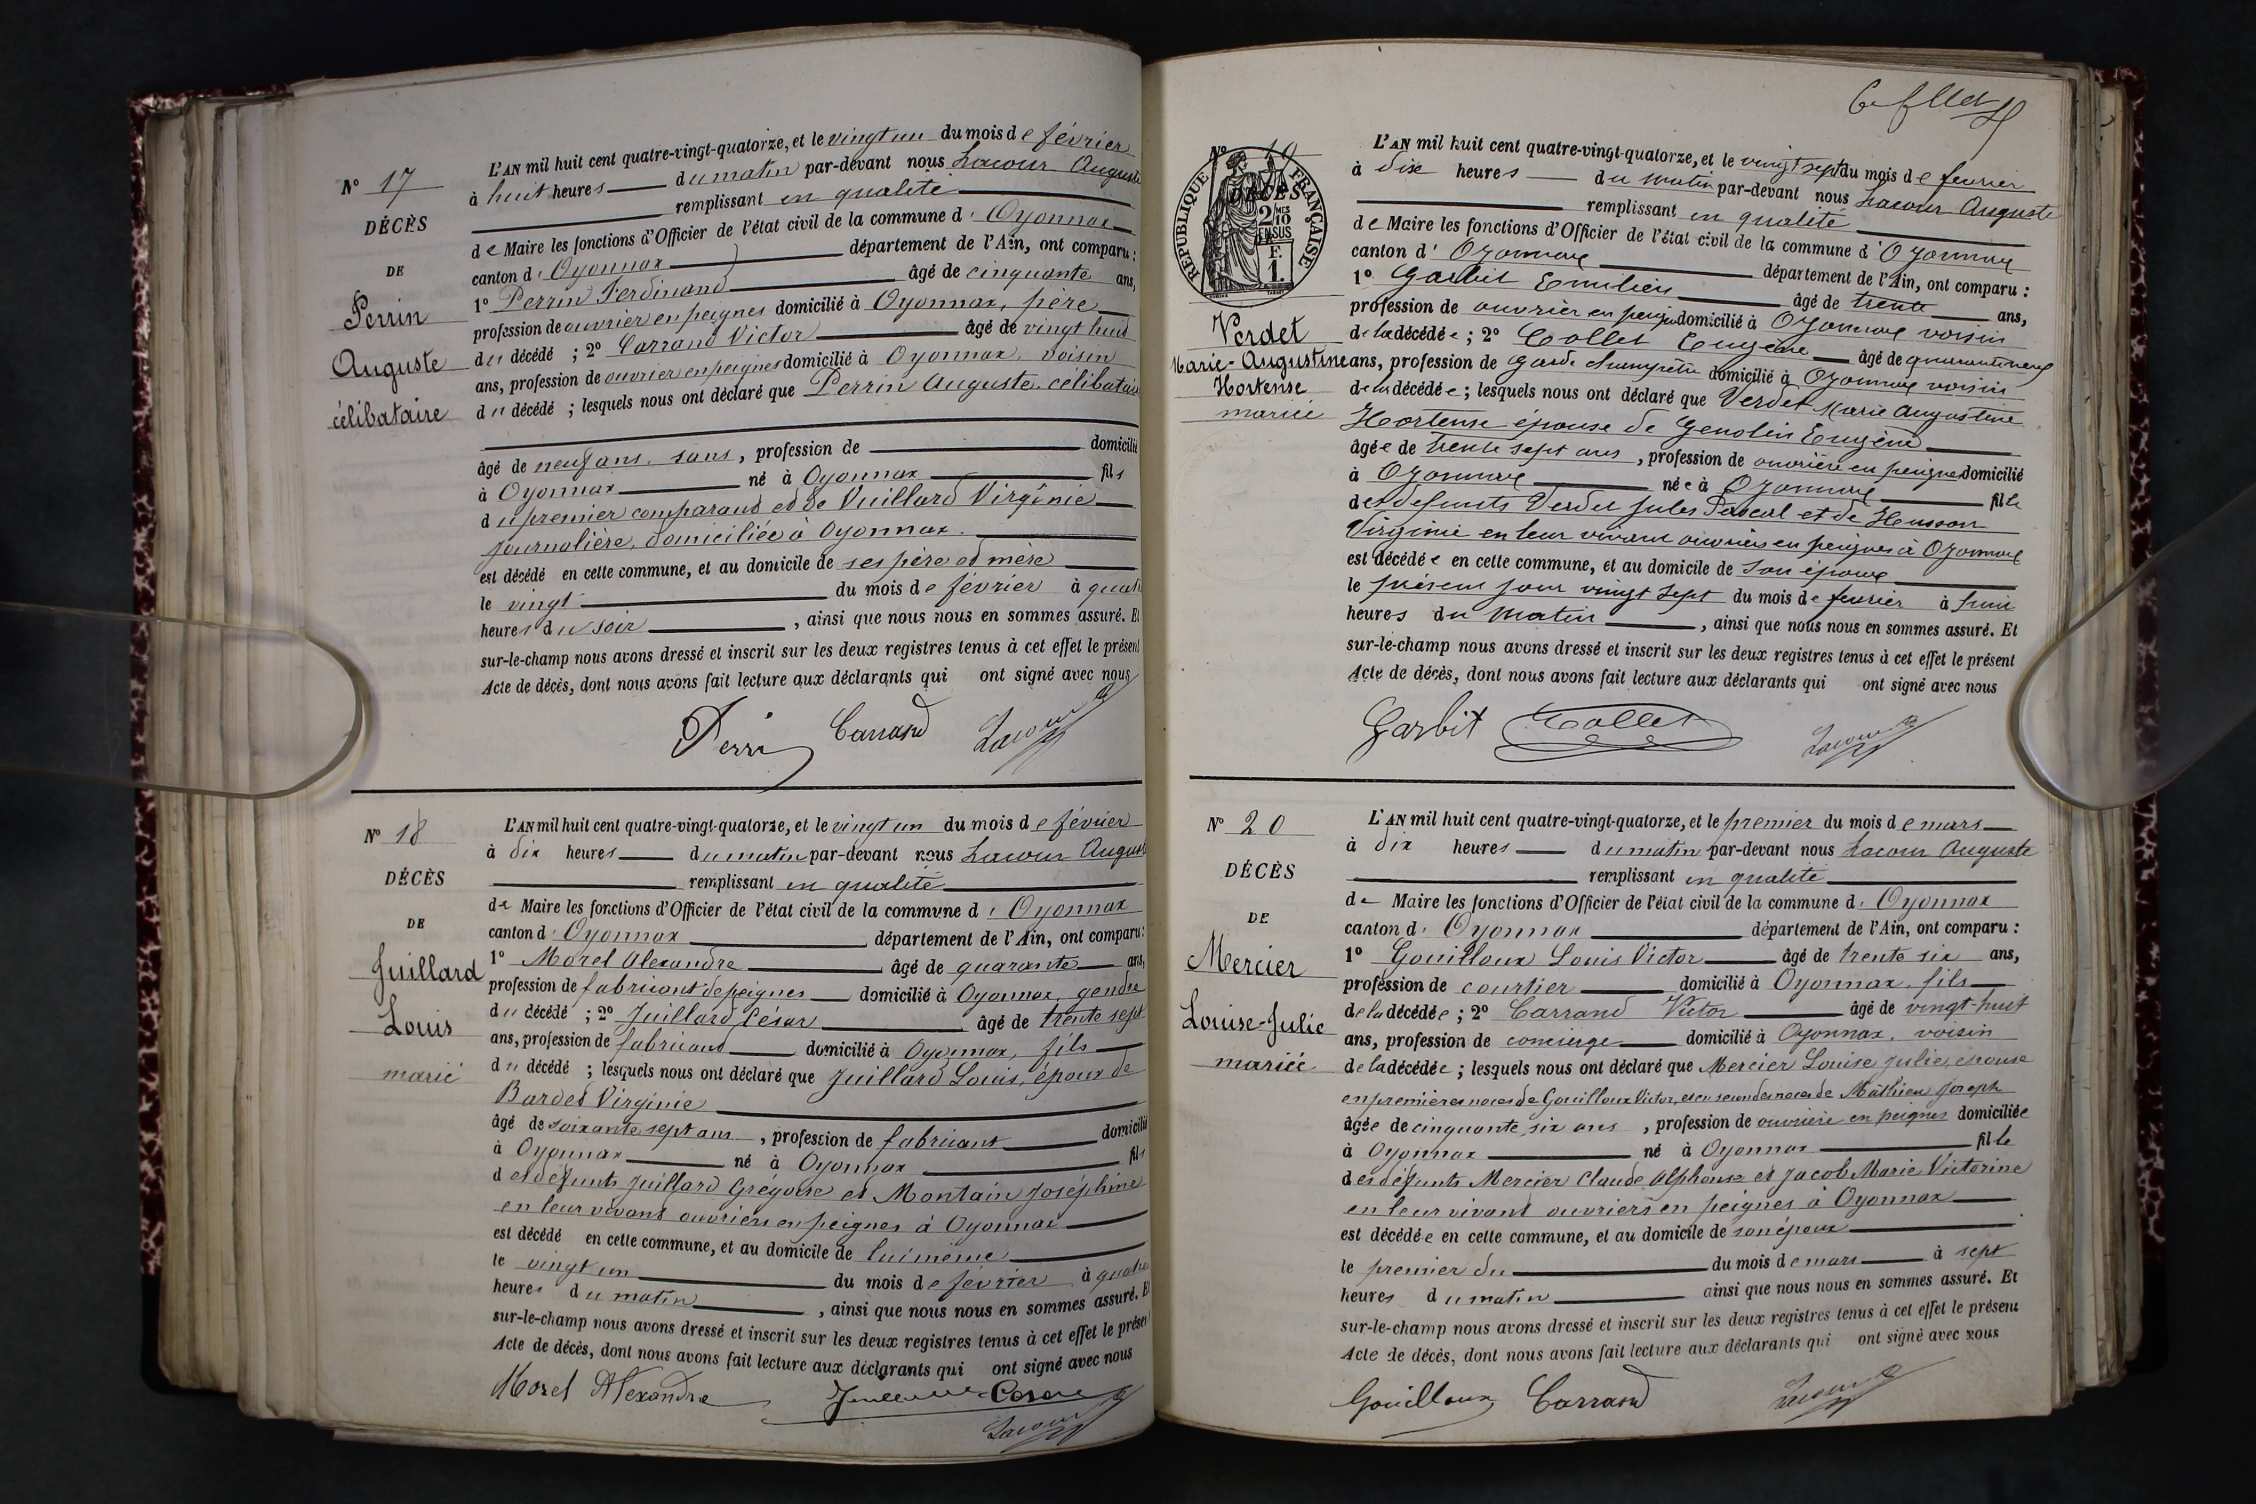 N° 17
DÉCÈS
DE
Perrin
Auguste
célibataire
L'AN mil huit cent quatre-vingt-quatorze, et le vingt un du mois de février
à huit heures du matin par-devant nous Lacour Auguste
remplissant en qualité
de Maire les fonctions d'Officier de l'état civil de la commune d' Oyonnax
canton d' Oyonnax département de l'Ain, ont comparu :
1° Perrin Ferdinand âgé de cinquante ans,
profession de ouvrier en peignes domicilié à Oyonnax, père
du décédé ; 2° Carrand Victor âgé de vingt huit
ans, profession de ouvrier en peignes domicilié à Oyonnax, voisin
du décédé ; lesquels nous ont déclaré que Perrin Auguste, célibataire
âgé de neuf ans, sans, profession de domicilié
à Oyonnax né à Oyonnax fils
du premier comparant et de Vuillard Virginie
journalière, domiciliée à Oyonnax.
est décédé en cette commune, et au domicile de ses père et mère
le vingt du mois de février à quatre
heures du soir , ainsi que nous nous en sommes assuré. Et
sur-le-champ nous avons dressé et inscrit sur les deux registres tenus à cet effet le présent
Acte de décès, dont nous avons fait lecture aux déclarants qui ont signé avec nous
Perrin Carrand Lacour
N° 18
DÉCÈS
DE
Juillard
Louis
marié
L'AN mil huit cent quatre-vingt-quatorze, et le vingt un du mois de février
à dix heures du matin par-devant nous Lacour Auguste
remplissant en qualité
de Maire les fonctions d'Officier de l'état civil de la commune d' Oyonnax
canton d' Oyonnax département de l'Ain, ont comparu :
1° Morel Alexandre âgé de quarante ans,
profession de fabricant de peignes domicilié à Oyonnax, gendre
du décédé ; 2° Juillard César âgé de trente sept
ans, profession de fabricant domicilié à Oyonnax, fils
du décédé ; lesquels nous ont déclaré que Juillard Louis, époux de
Bardet Virginie
âgé de soixante sept ans , profession de fabricant domicilié
à Oyonnax né à Oyonnax fils
des défunts Juillard Grégoire et Montain Joséphine
en leur vivant ouvriers en peignes à Oyonnax
est décédé en cette commune, et au domicile de lui même
le vingt un du mois de février à quatre
heures du matin , ainsi que nous nous en sommes assuré. Et
sur-le-champ nous avons dressé et inscrit sur les deux registres tenus à cet effet le présent
Acte de décès, dont nous avons fait lecture aux déclarants qui ont signé avec nous
Morel Alexandre Juillard César
Lacour
N° 19
DÉCÈS
RÉPUBLIQUE FRANÇAISE
2 MES 10
EN SUS
F.
1.
Verdet
Marie-Augustine
Hortense
mariée
L'AN mil huit cent quatre-vingt-quatorze, et le vingt sept du mois de fevrier
à dix heures du matin par-devant nous Lacour Auguste
remplissant en qualité
de Maire les fonctions d'Officier de l'état civil de la commune d' Oyonnax
canton d' Oyonnax département de l'Ain, ont comparu :
1° Garbit Emilien âgé de trente ans,
profession de ouvrier en peignes domicilié à Oyonnax voisin
de la décédée ; 2° Collet Eugène âgé de quarante neuf
ans, profession de garde champêtre domicilié à Oyonnax voisin
de la décédée ; lesquels nous ont déclaré que Verdet Marie Augustine
Hortense épouse de Genolin Eugène
âgée de trente sept ans , profession de ouvrière en peignes domicilié
à Oyonnax née à Oyonnax fille
des defunts Verdet Jules Pascal et de Husson
Virginie en leur vivant ouvriers en peignes à Oyonnax
est décédée en cette commune, et au domicile de son époux
le présent jour vingt sept du mois de fevrier à huit
heures du matin , ainsi que nous nous en sommes assuré. Et
sur-le-champ nous avons dressé et inscrit sur les deux registres tenus à cet effet le présent
Acte de décès, dont nous avons fait lecture aux déclarants qui ont signé avec nous
Garbit Collet Lacour
N° 20
DÉCÈS
DE
Mercier
Louise-Julie
mariée
L'AN mil huit cent quatre-vingt-quatorze, et le premier du mois de mars
à dix heures du matin par-devant nous Lacour Auguste
remplissant en qualité
de Maire les fonctions d'Officier de l'état civil de la commune d' Oyonnax
canton d' Oyonnax département de l'Ain, ont comparu :
1° Gouilloux Louis Victor âgé de trente six ans,
profession de courtier domicilié à Oyonnax, fils
de la décédée ; 2° Carrand Victor âgé de vingt-huit
ans, profession de concierge domicilié à Oyonnax, voisin
de la décédée ; lesquels nous ont déclaré que Mercier Louise Julie, épouse
en premières noces de Gouilloux Victor, et en secondes noces de Mathieu Joseph
âgée de cinquante six ans , profession de ouvrière en peignes domiciliée
à Oyonnax né à Oyonnax fille
des défunts Mercier Claude Alphonse et Jacob Marie Victorine
en leur vivant ouvriers en peignes à Oyonnax
est décédée en cette commune, et au domicile de son époux
le premier du du mois de mars à sept
heures du matin ainsi que nous nous en sommes assuré. Et
sur-le-champ nous avons dressé et inscrit sur les deux registres tenus à cet effet le présent
Acte de décès, dont nous avons fait lecture aux déclarants qui ont signé avec nous
Gouilloux Carrand Lacour